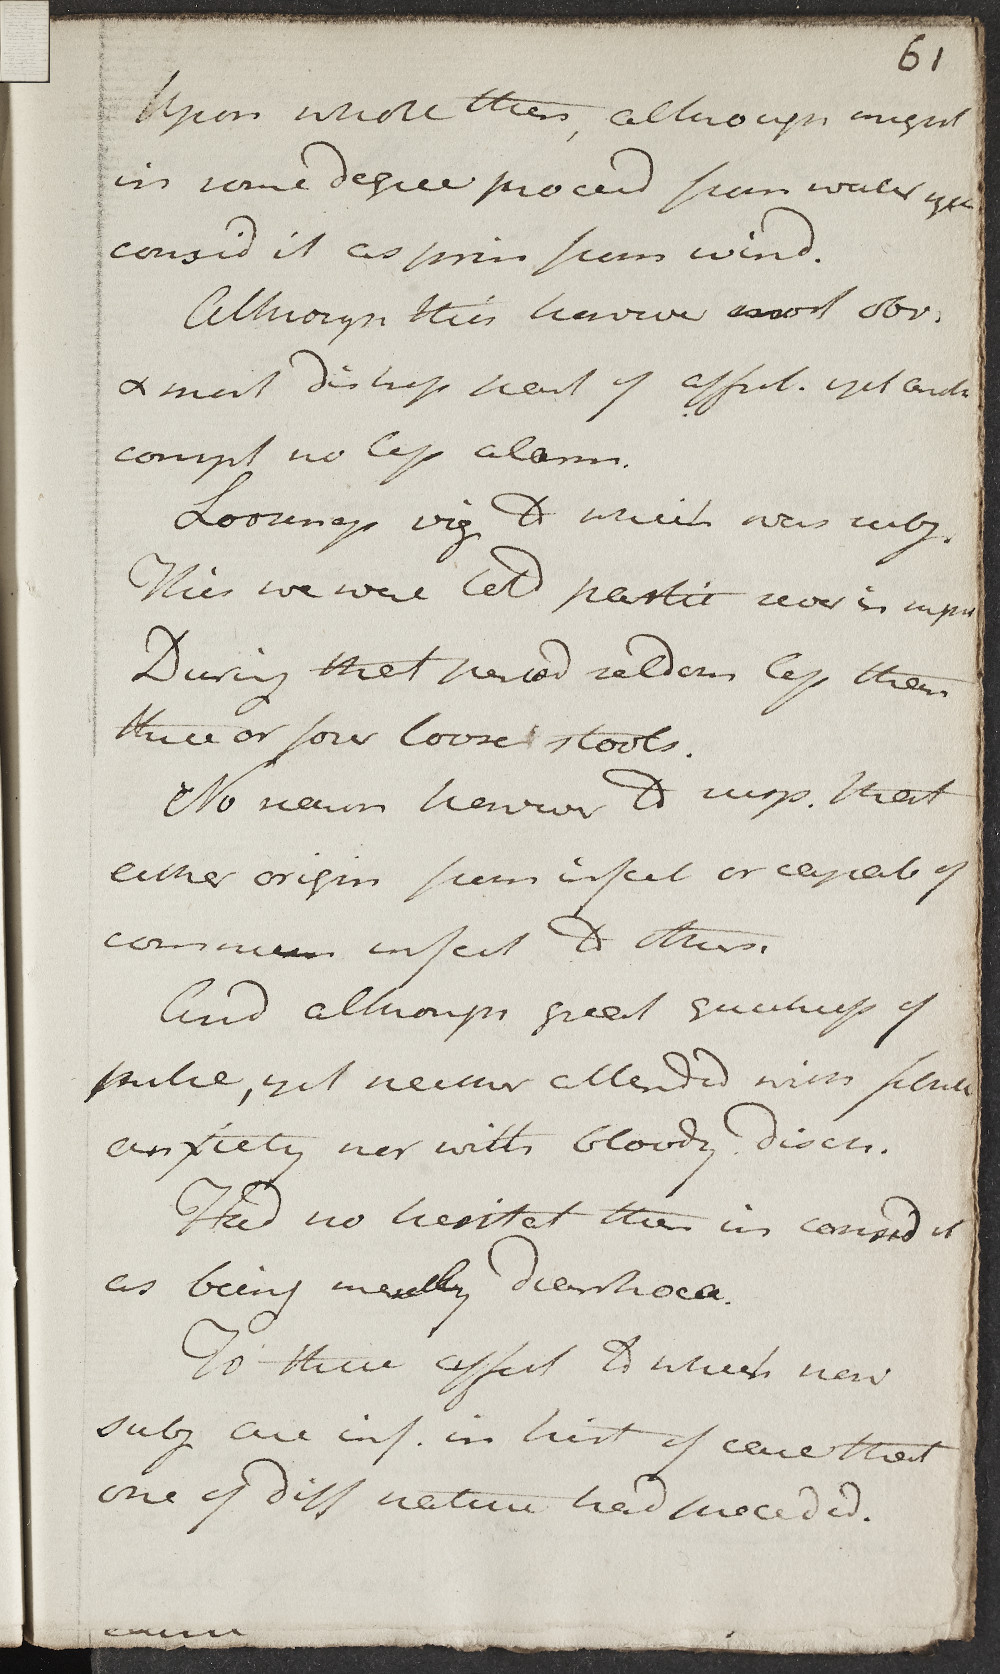 61
Upon whole then, although might
in some degree proceed from water yet
consid it as prin from wind.
Although this however most obv.
& most distress part of affect. yet and
compt no less alarm.
Looseness viz to which was subj.
This we were told partic sever in
During that period seldom less than
three or four loose stools.
No reason however to susp. that
either origin from infect or capab of
commun infect to others.
And although great quickness of
pulse, yet neither attended with febrile
anxiety nor with bloody disch.
Had no hesitat then in consid it
as being merely diarrhoea.
To these affect to which now
subj are inf. in hist of case that
one of diff nature had preceded.